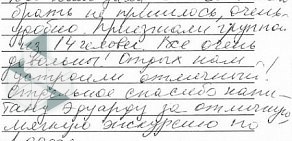 брать не пришлось, очень
удобно. Приезжали группой
из 14 человек. Все очень
довольны! Отдых нам
устроили отличный!
Отдельное спасибо капи-
тану Эдуарду за отличную
морскую экскурсию по